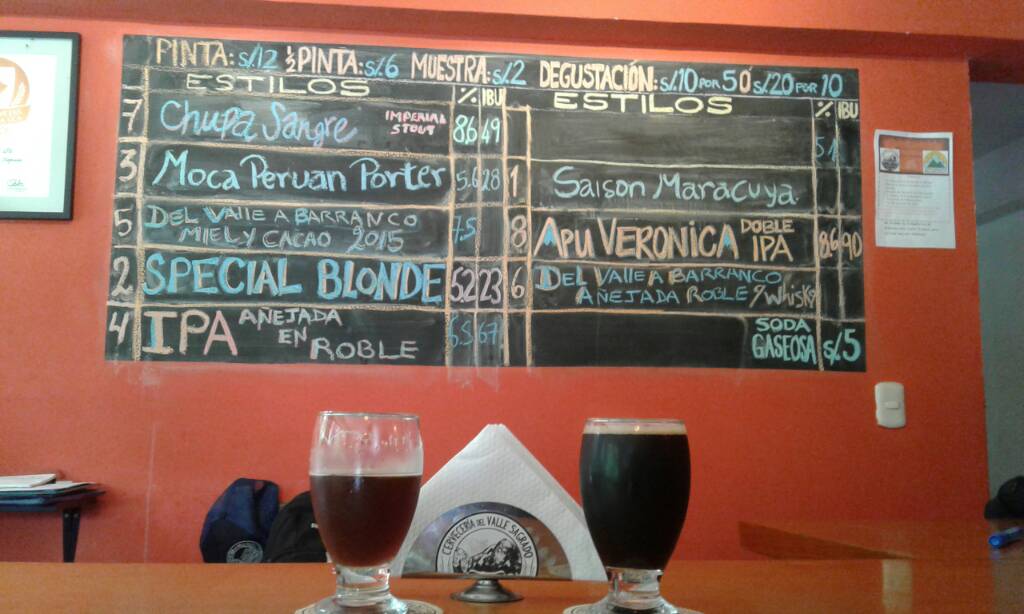 PINTA: S/.12 ½ PINTA: S/.6 MUESTRA: S/.2 DEGUSTACIÓN: S/.10 POR 5 Ó S/.20 POR 10
ESTILOS % IBU
7 Chupa Sangre IMPERIAL STOUT 8.6 49
3 Moca Peruan Porter 5.6 28
5 DEL VALLE A BARRANCO
MIEL Y CACAO 2015 7.5
2 SPECIAL BLONDE 5.2 23
4 IPA AÑEJADA
EN
ROBLE 6.5 67
ESTILOS % IBU
5.1
1 Saison Maracuya
8 APU VERONICA DOBLE
IPA 8.6 90
6 DEL VALLE A BARRANCO
AÑEJADA ROBLE y Whisky
SODA
GASEOSA S/.5
CERVECERÍA DEL VALLE SAGRADO